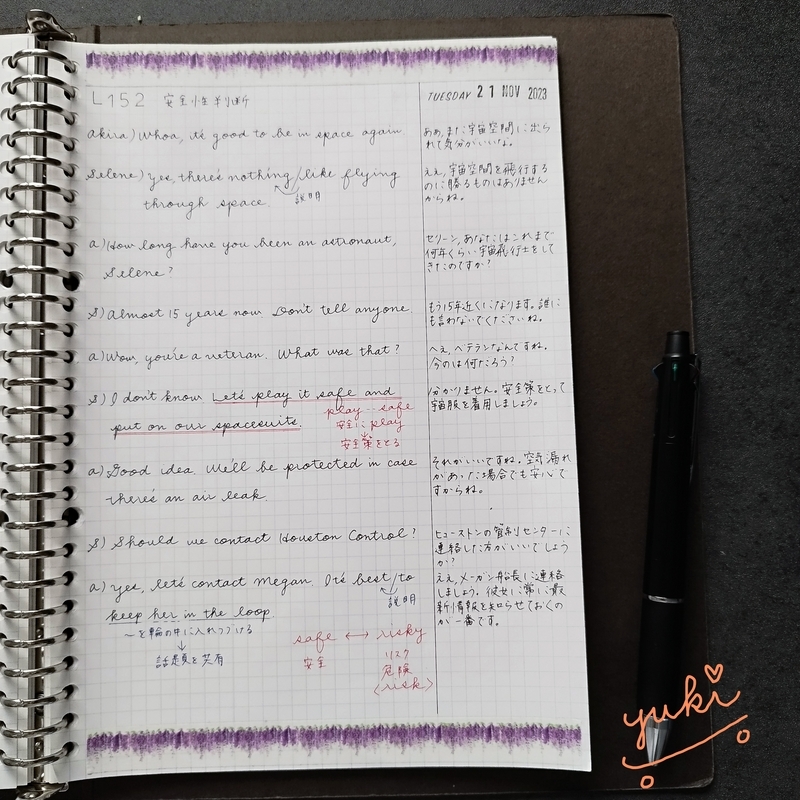 L152 安全性判断
TUESDAY 21 NOV 2023
akira) Whoa, it's good to be in space again
ああ、また宇宙空間に出ら
れて気分がいいな。
Selene) yes, there's nothing / like flying
through space.
説明
ええ、宇宙空間を飛行する
のに勝るものはありません
からね。
a) How long have you been an astronaut,
Selene?
セリーン、あなたはこれまで
何年くらい宇宙飛行士をして
きたのですか?
S) Almost 15 years now. Don't tell anyone.
もう15年近くになります。誰に
も言わないでくださいね。
a) Wow, you're a veteran. What was that?
へえ、ベテランなんですね。
今のは何だろう?
S) I don't know. Let's play it safe and
put on our spacesuits.
play … safe
安全に play
安全策をとる
分かりません。安全策をとって
宇宙服を着用しましょう。
a) Good idea. We'll be protected in case
there's an air leak.
それがいいですね。空気漏れ
があった場合でも安心で
すからね。
S) Should we contact Houston Control?
ヒューストンの管制センターに
連絡した方がいいでしょう
か?
a) yes, let's contact Megan. It's best / to
keep her in the loop.
説明
〜を輪の中に入れつづける
↓
話題を共有
ええ、メーガン船長に連絡
しましょう。彼女に常に最
新情報を知らせておくの
が一番です。
safe ↔ risky
安全 リスク
危険
〈risk〉
yuki